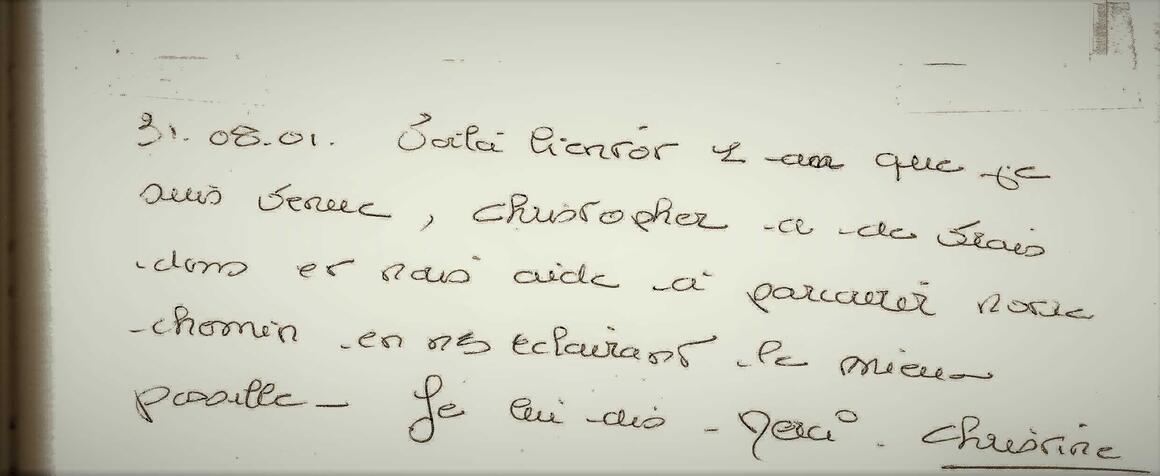 31.08.01. Voilà bientôt 1 an que je
suis venue, Christopher a de vrais
dons et nous aide à parcourir notre
chemin en ns eclairant le mieux
possible - Je lui dis - Merci. Christine